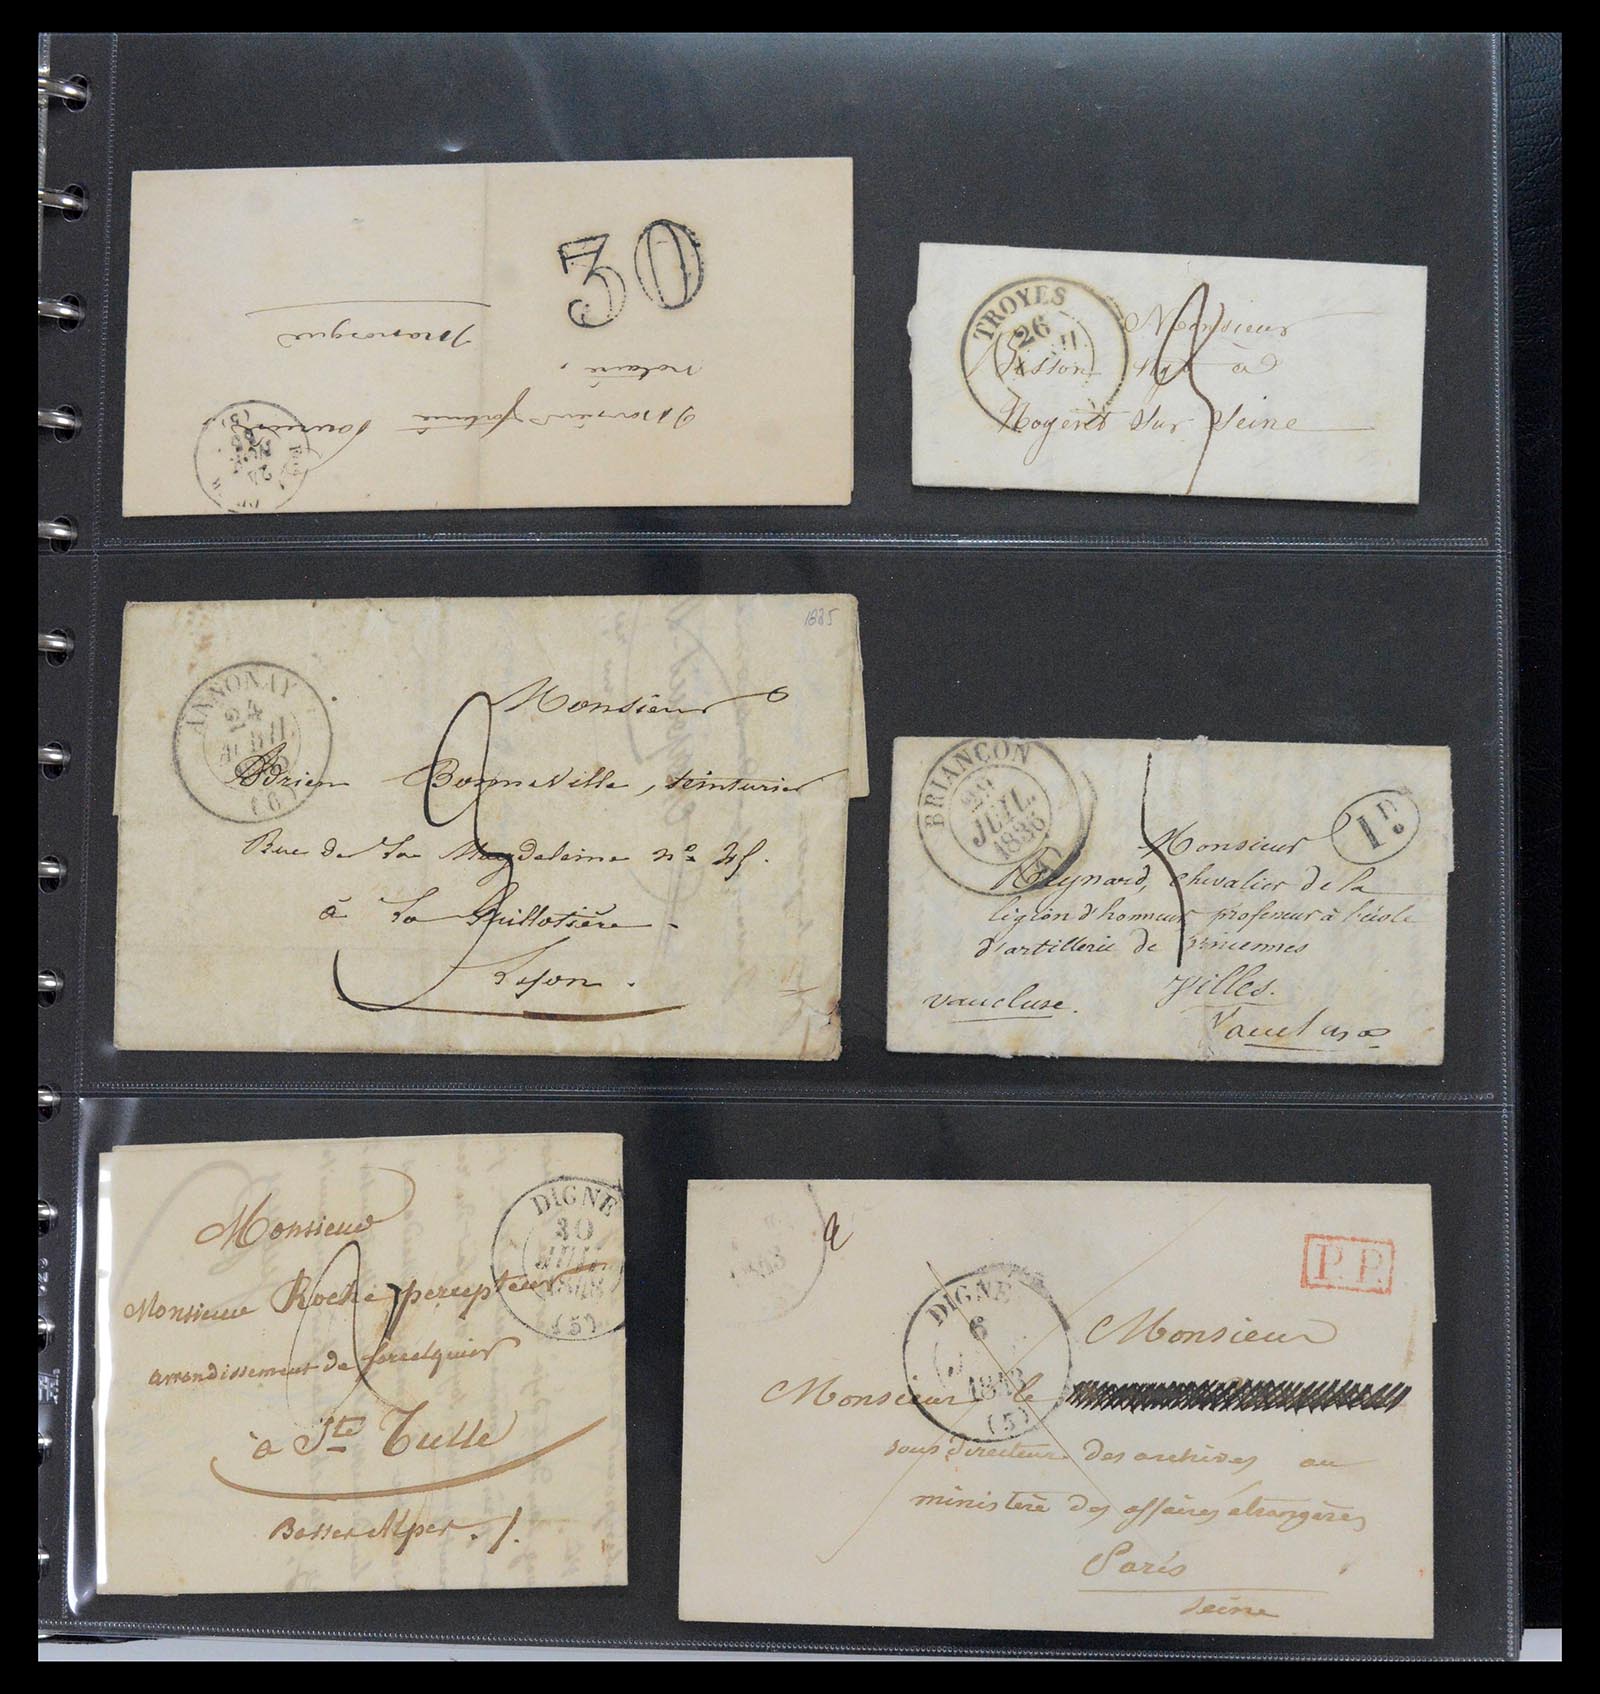 30
Monsieur fortuné
notaire,
Manosque
24
TROYES
26
Monsieur
à
sur Seine
1835
ANNONAY
24
(6)
Monsieur
Adrien Bonneville, teinturier
Rue de La Magdeleine nº 45.
à La Guillotière
Lyon.
BRIANÇON
29
JUIL.
1836
(4)
1D.
Monsieur
Reynard, chevalier de la
légion d'honneur professeur à l'école
d'artillerie de vincennes
Villes.
vaucluse.
Vaucluse
DIGNE
30
(5)
Monsieur
Monsieur Roche percepteur
arrondissement de forcalquier
à Ste Tulle
Basses Alpes
P.P.
DIGNE
6
1843
(5)
Monsieur
Monsieur le
sous directeur des archives au
ministère des affaires étrangères
Paris
Seine